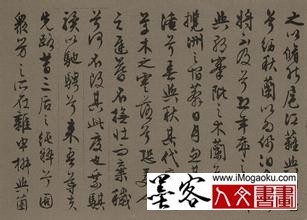 之以脩能扈江離
兮紉秋蘭以為佩汩
將不及兮恐年歲
與朝搴阰之木蘭
攬洲之宿莽日月忽其
淹兮春與秋其代序
草木之零落兮恐美
之遲暮不撫壯而棄穢
兮何不改其此度也乘騏
驥以馳騁兮來吾導夫
先路昔三后之純粹兮固
衆芳之所在雜申椒與菌
墨客
www.iMogaoku.com
人文